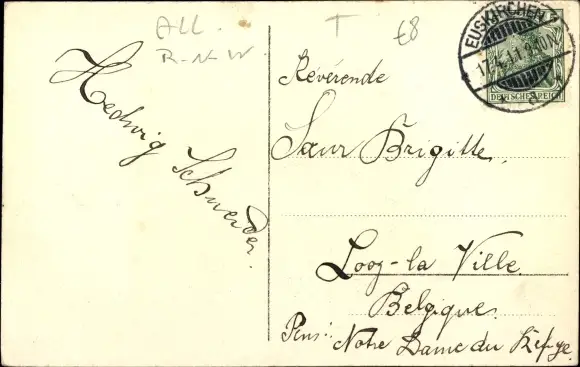 ALL.
R-N-W
T
£8
EUSKIRCHEN
17.4.11.
DEUTSCHES REICH
Hedwig Schneider.
Révérende
Sœur Brigitte.
Looz-la Ville
Belgique
Pens: Notre Dame du Refuge.